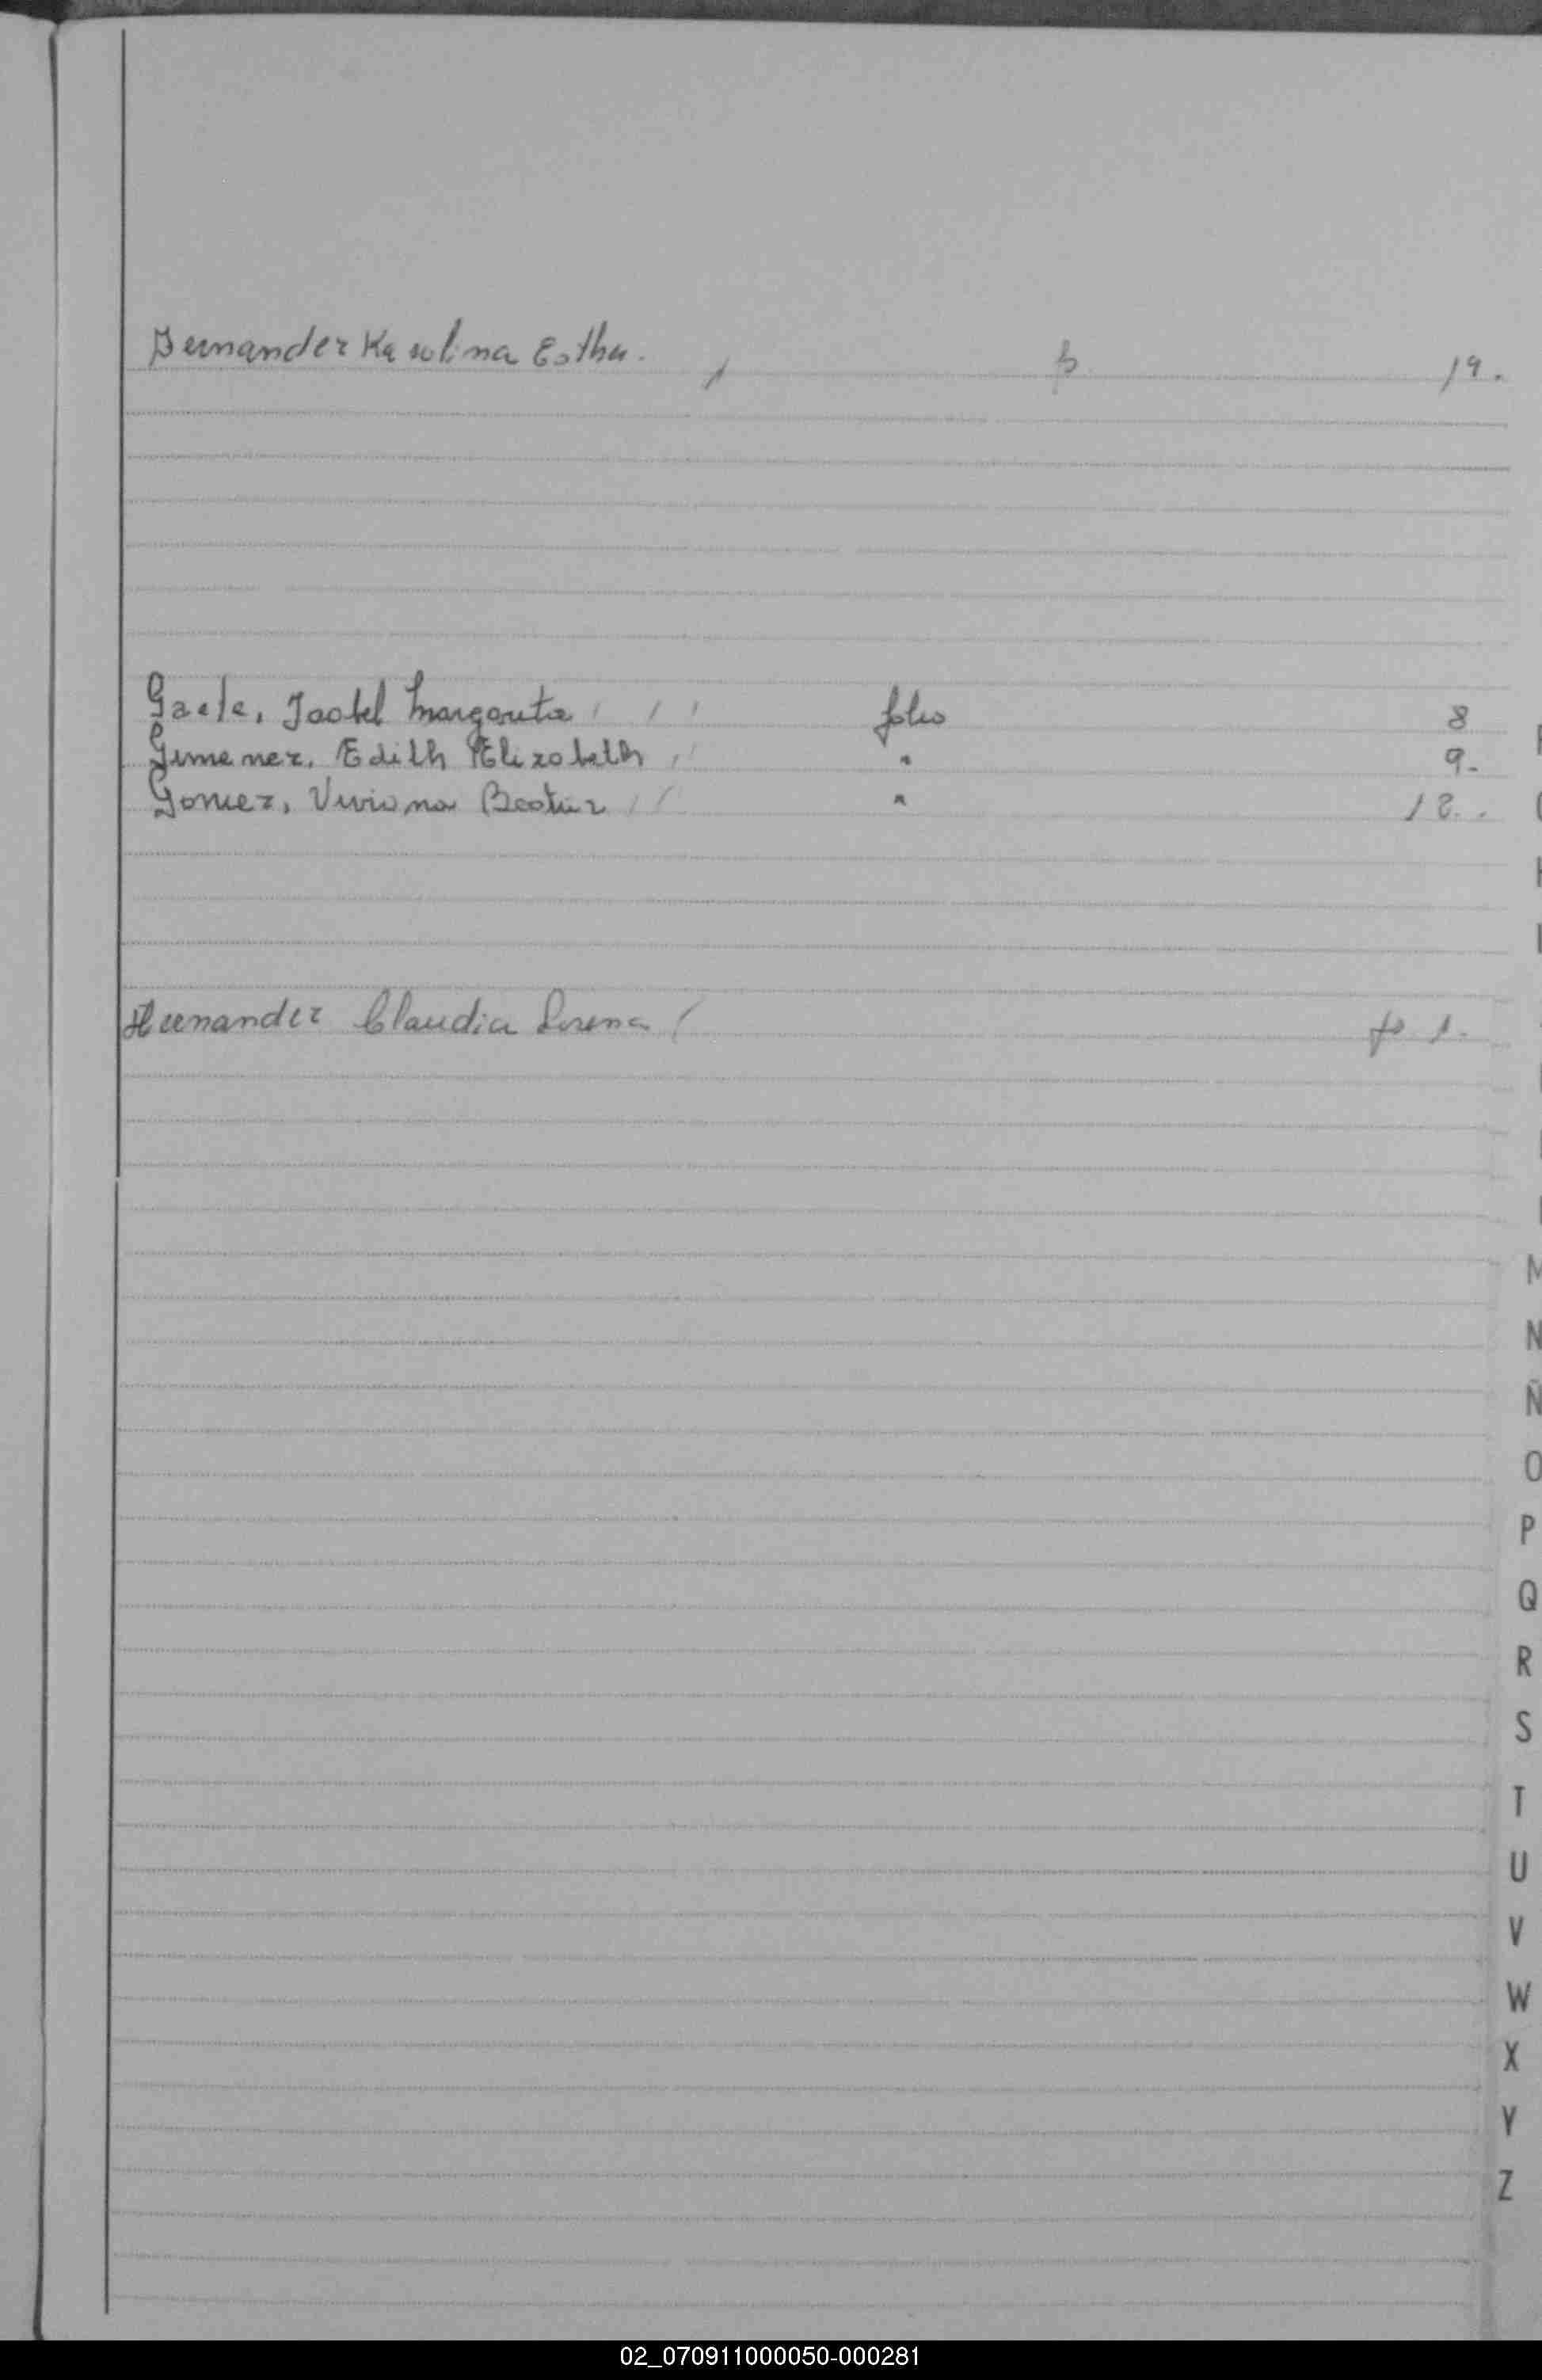 Fernandez Karolina Esther. f 19.
Isabel Margarita folio 8
Gimenez, Edith Elizabeth " 9.-
Gomez, Viviana Beatriz " 12..
Hernandez Claudia Lorena fº 1.
M
N
Ñ
O
P
Q
R
S
T
U
V
W
X
Y
Z
02_070911000050-000281